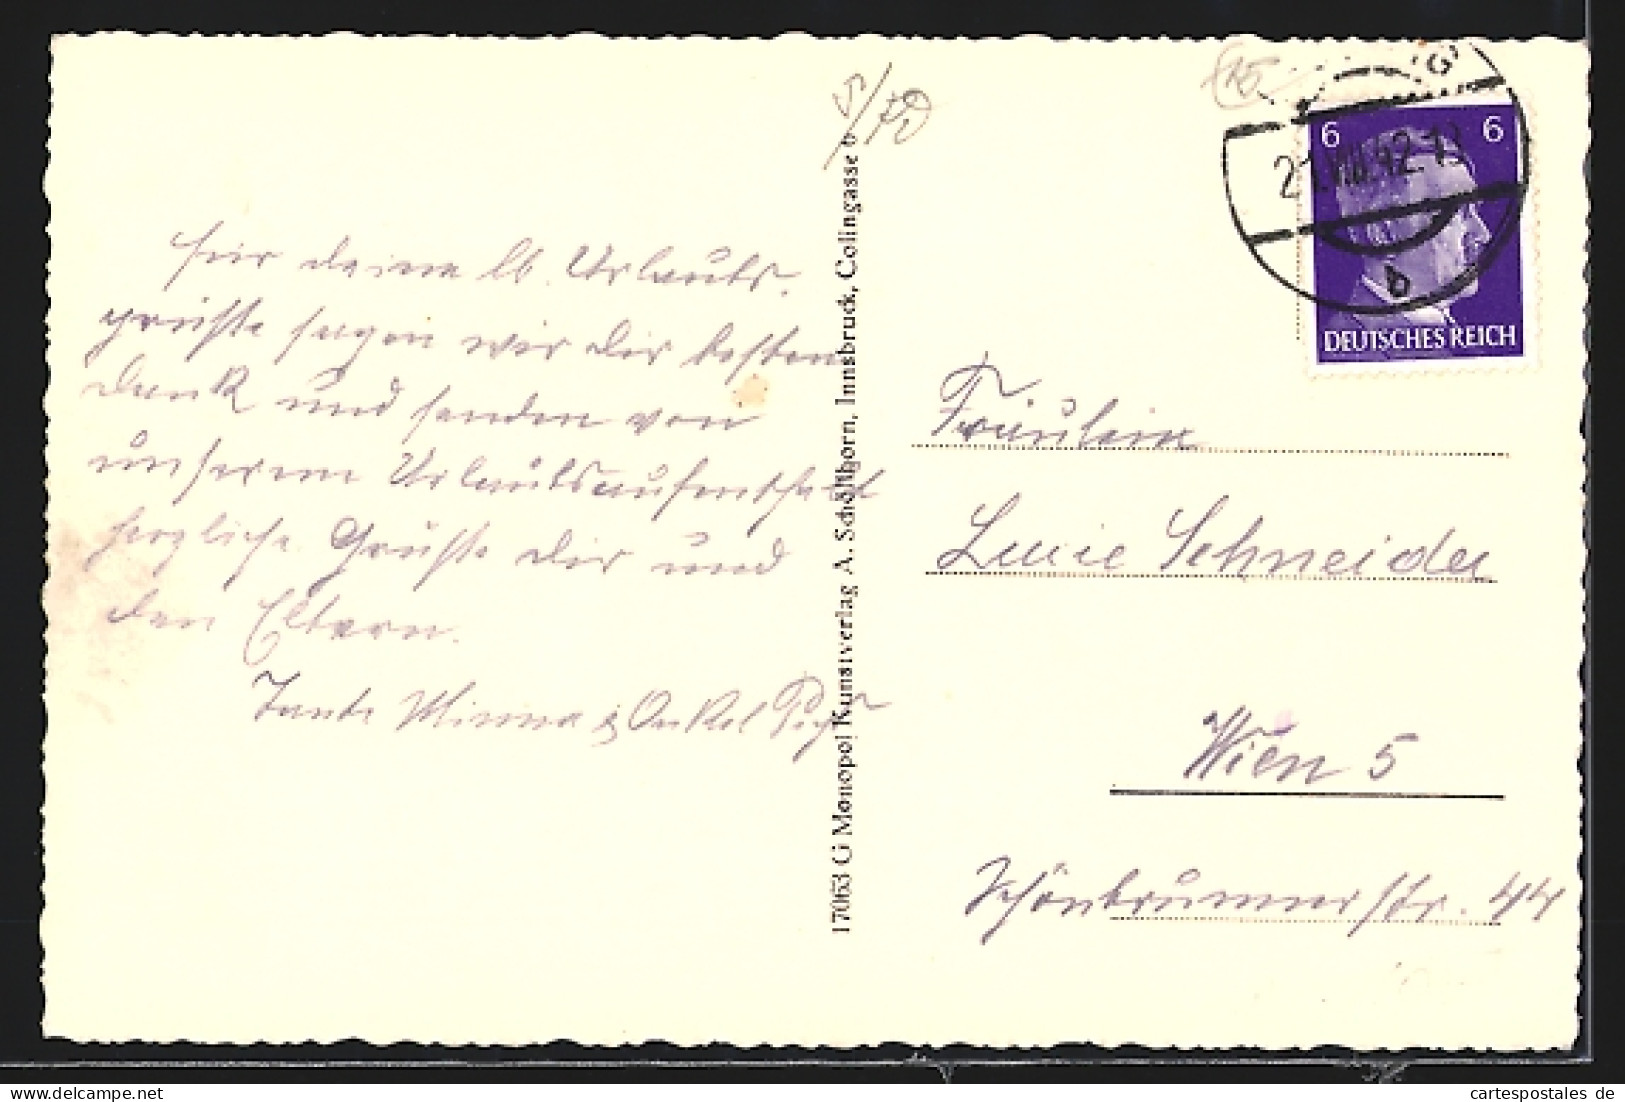 Für deine lb. Urlaubs-
grüsse sagen wir dir besten
Dank und senden von
unserem Urlaubsaufenthalt
herzliche Grüsse dir und
den Eltern.
Tante Minna & Onkel
17063 G Monopol Kunstverlag A. Schöllhorn, Innsbruck, Colingasse 6
6 6
21.VIII.42.13
b
DEUTSCHES REICH
Fräulein
Lucie Schneider
Wien 5
Schönbrunnerstr. 44
delcampe.net
cartespostales de